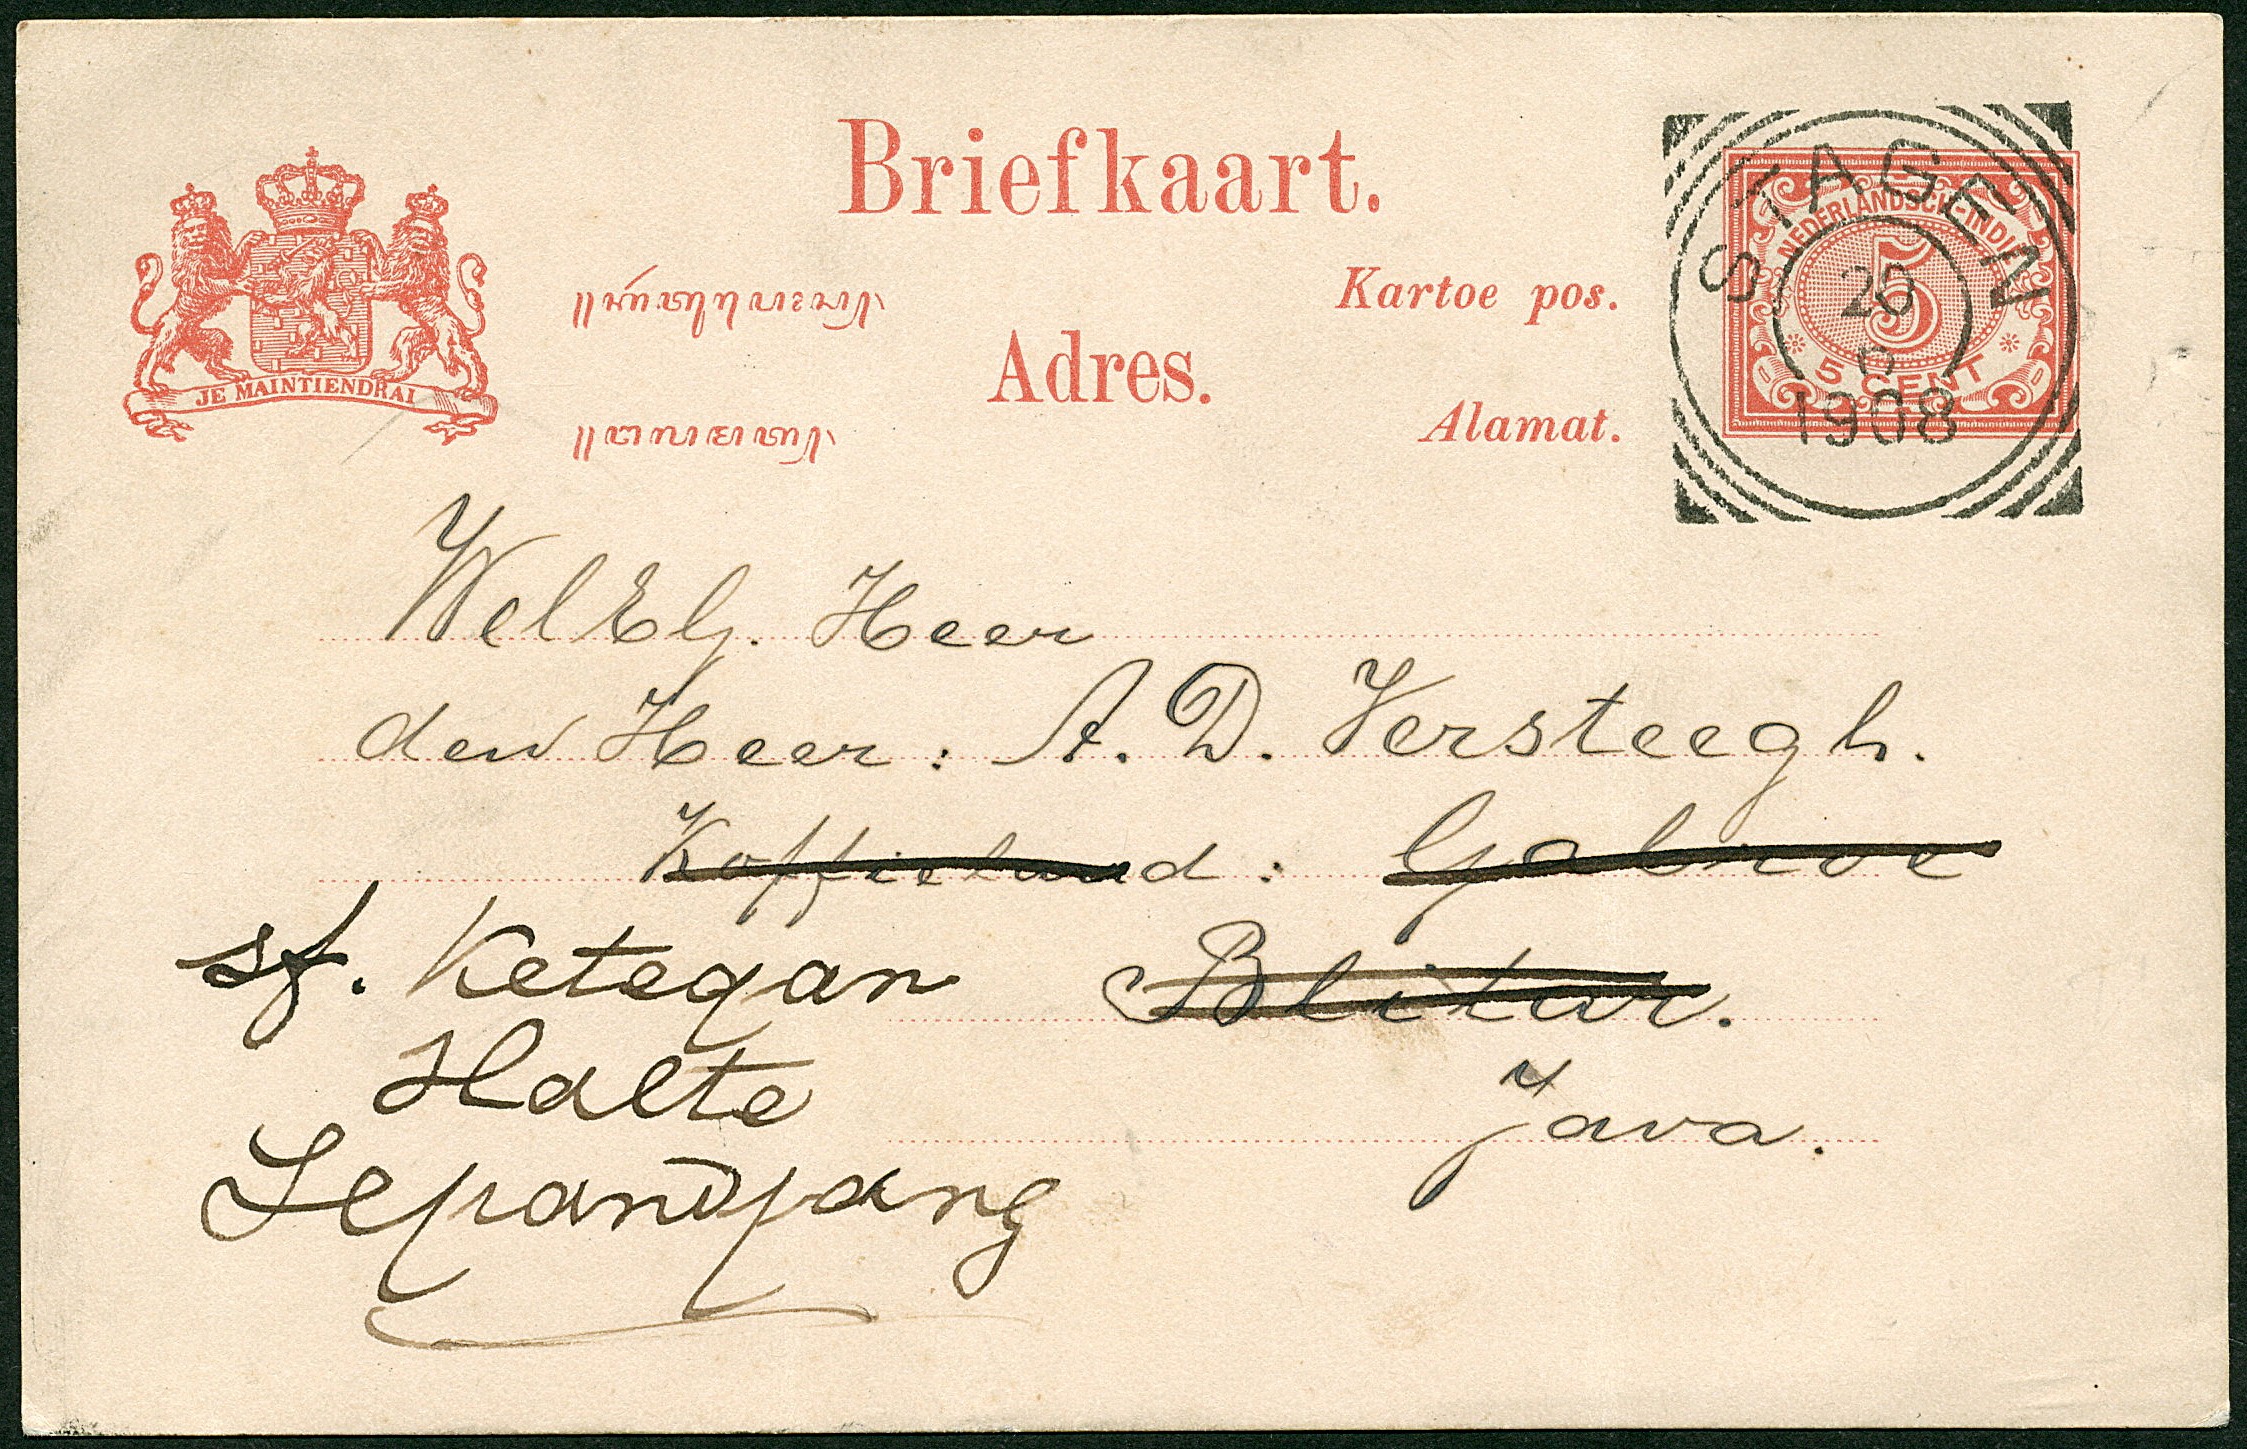 Briefkaart.
JE MAINTIENDRAI
Kartoe pos.
Adres.
Alamat.
NEDERLANDSCH-INDIË
5
5 CENT
STAGEN
20
6
1908
WelEG. Heer
den Heer: A. D. Versteegh.
Koffieland:
sf. Ketegan
Blitar.
Halte
Java.
Sepandjang